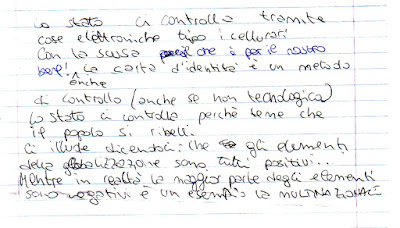 Lo stato ci controlla tramite
cose elettroniche tipo i cellurari
Con la scusa che è per il nostro
bene! La carta d'identità è un metodo
anche
di controllo (anche se non tecnologica)
Lo stato ci controlla perchè teme che
il popolo si ribelli.
Ci illude dicendoci: che gli elementi
della globalizzazione sono tutti positivi..
Mentre in realtà la maggior parte degli elementi
sono negativi e un esempio la MULTINAZIONALE